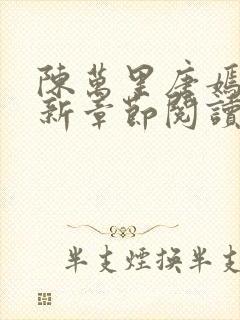 陳萬里唐嫣
新章節閱讀
半支煙換半支